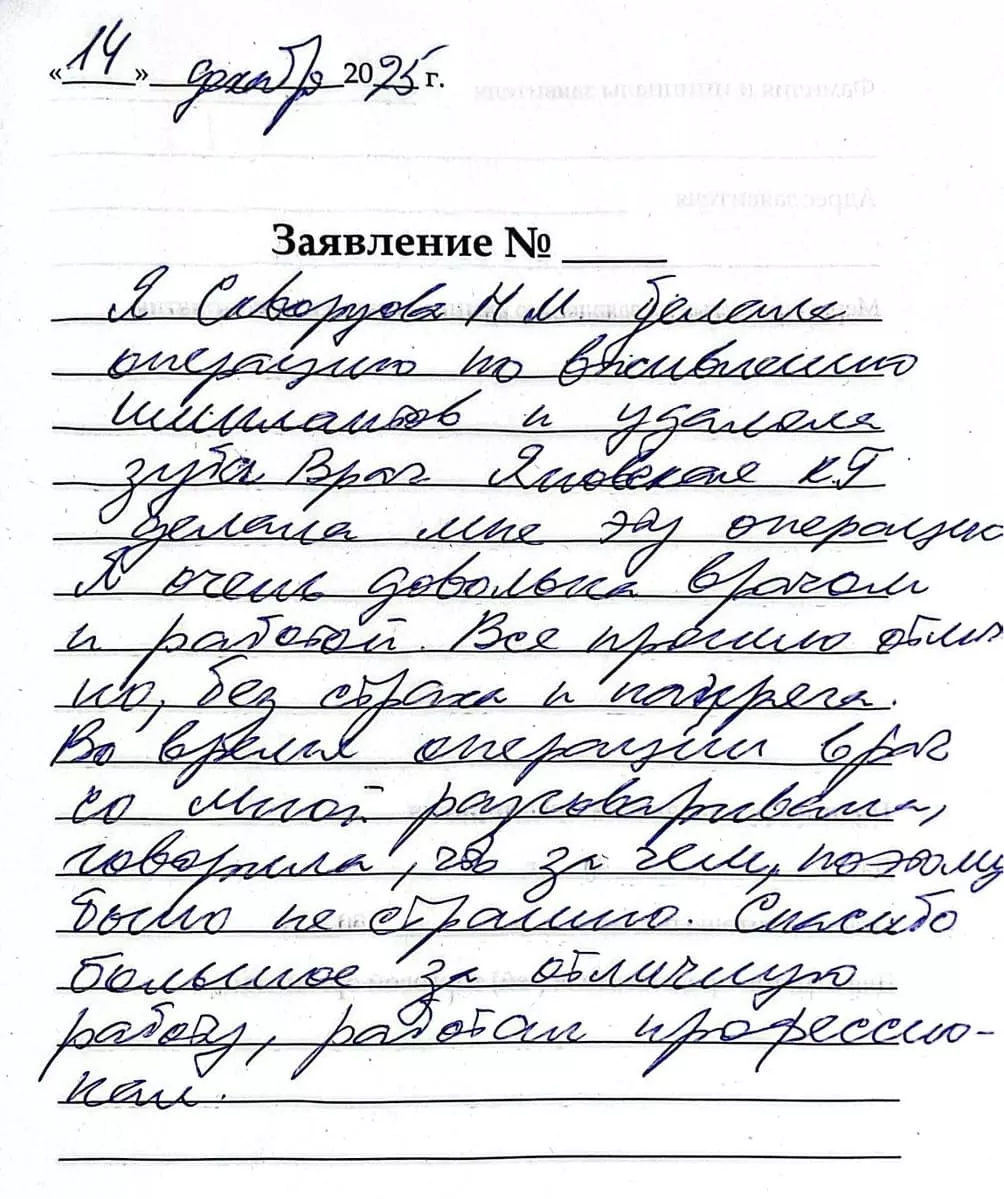 «14» декабря 2025 г.
Заявление № ____
Я Скворцова Н М делала
операцию по вживлению
имплантов и удаляла
зуба Врач Яновская К.Г
делала мне эту операцию
Я очень довольна врачом
и работой. Все прошло отлич
но, без страха и напряга.
Во время операции врач
со мной разговаривала,
говорила, что за чем, поэтому
было не страшно. Спасибо
большое за отличную
работу, работал професси-
нал.